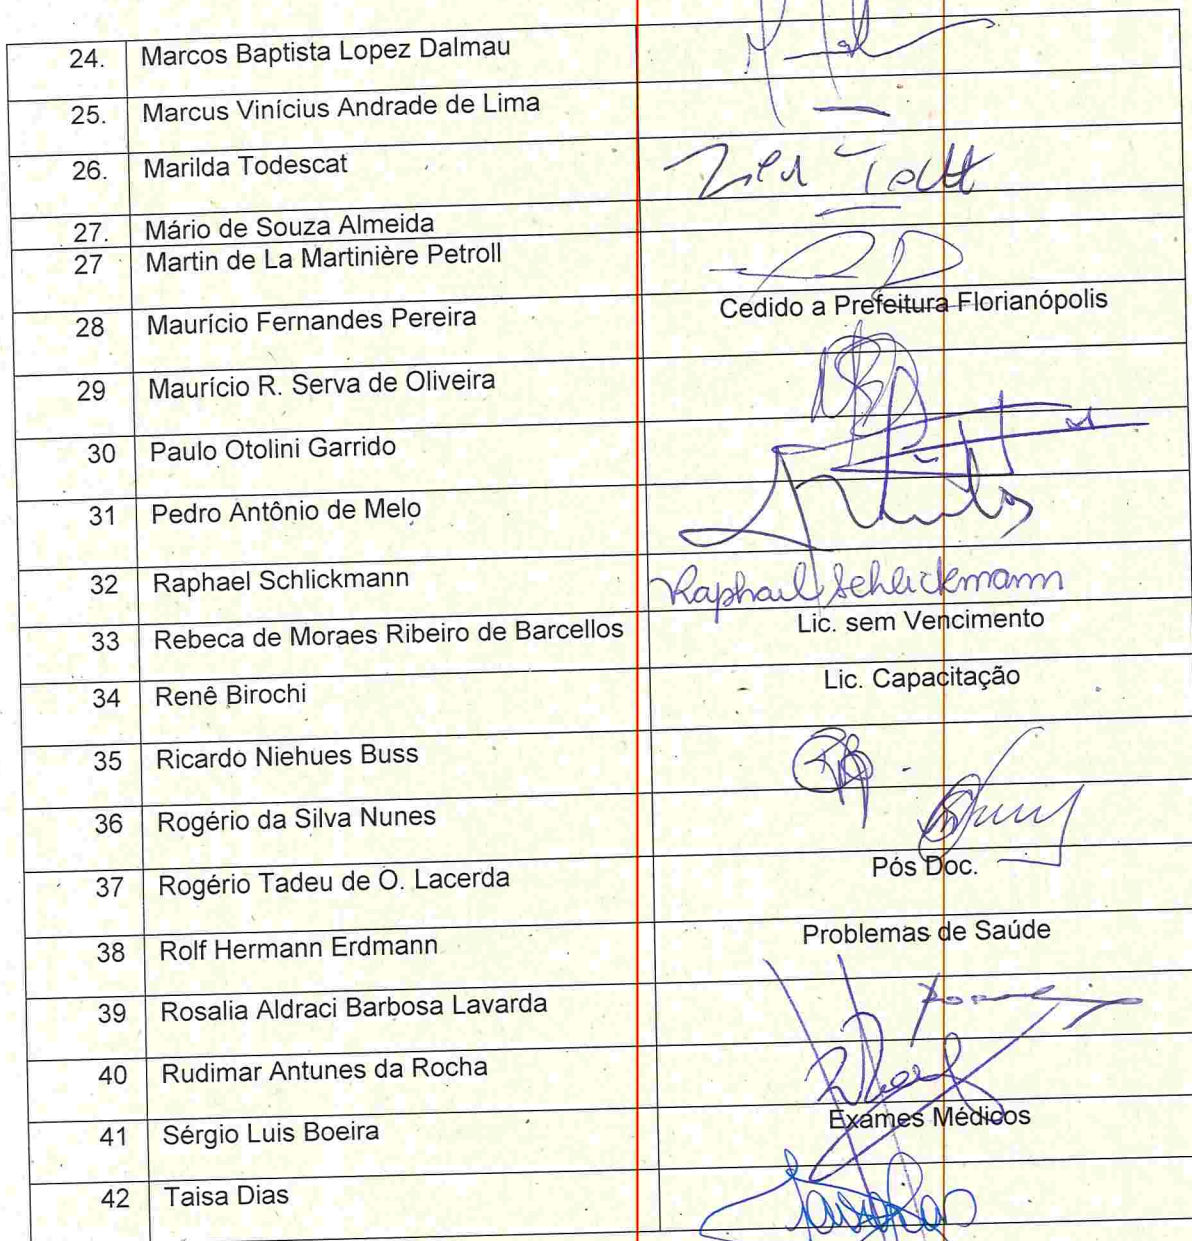 24. Marcos Baptista Lopez Dalmau
25. Marcus Vinícius Andrade de Lima
26. Marilda Todescat
27. Mário de Souza Almeida
27 Martin de La Martinière Petroll
28 Maurício Fernandes Pereira Cedido a Prefeitura Florianópolis
29 Maurício R. Serva de Oliveira
30 Paulo Otolini Garrido
31 Pedro Antônio de Melo
32 Raphael Schlickmann Raphael Schlickmann
33 Rebeca de Moraes Ribeiro de Barcellos Lic. sem Vencimento
34 Renê Birochi Lic. Capacitação
35 Ricardo Niehues Buss
36 Rogério da Silva Nunes
37 Rogério Tadeu de O. Lacerda Pós Doc.
38 Rolf Hermann Erdmann Problemas de Saúde
39 Rosalia Aldraci Barbosa Lavarda
40 Rudimar Antunes da Rocha
41 Sérgio Luis Boeira Exames Médicos
42 Taisa Dias